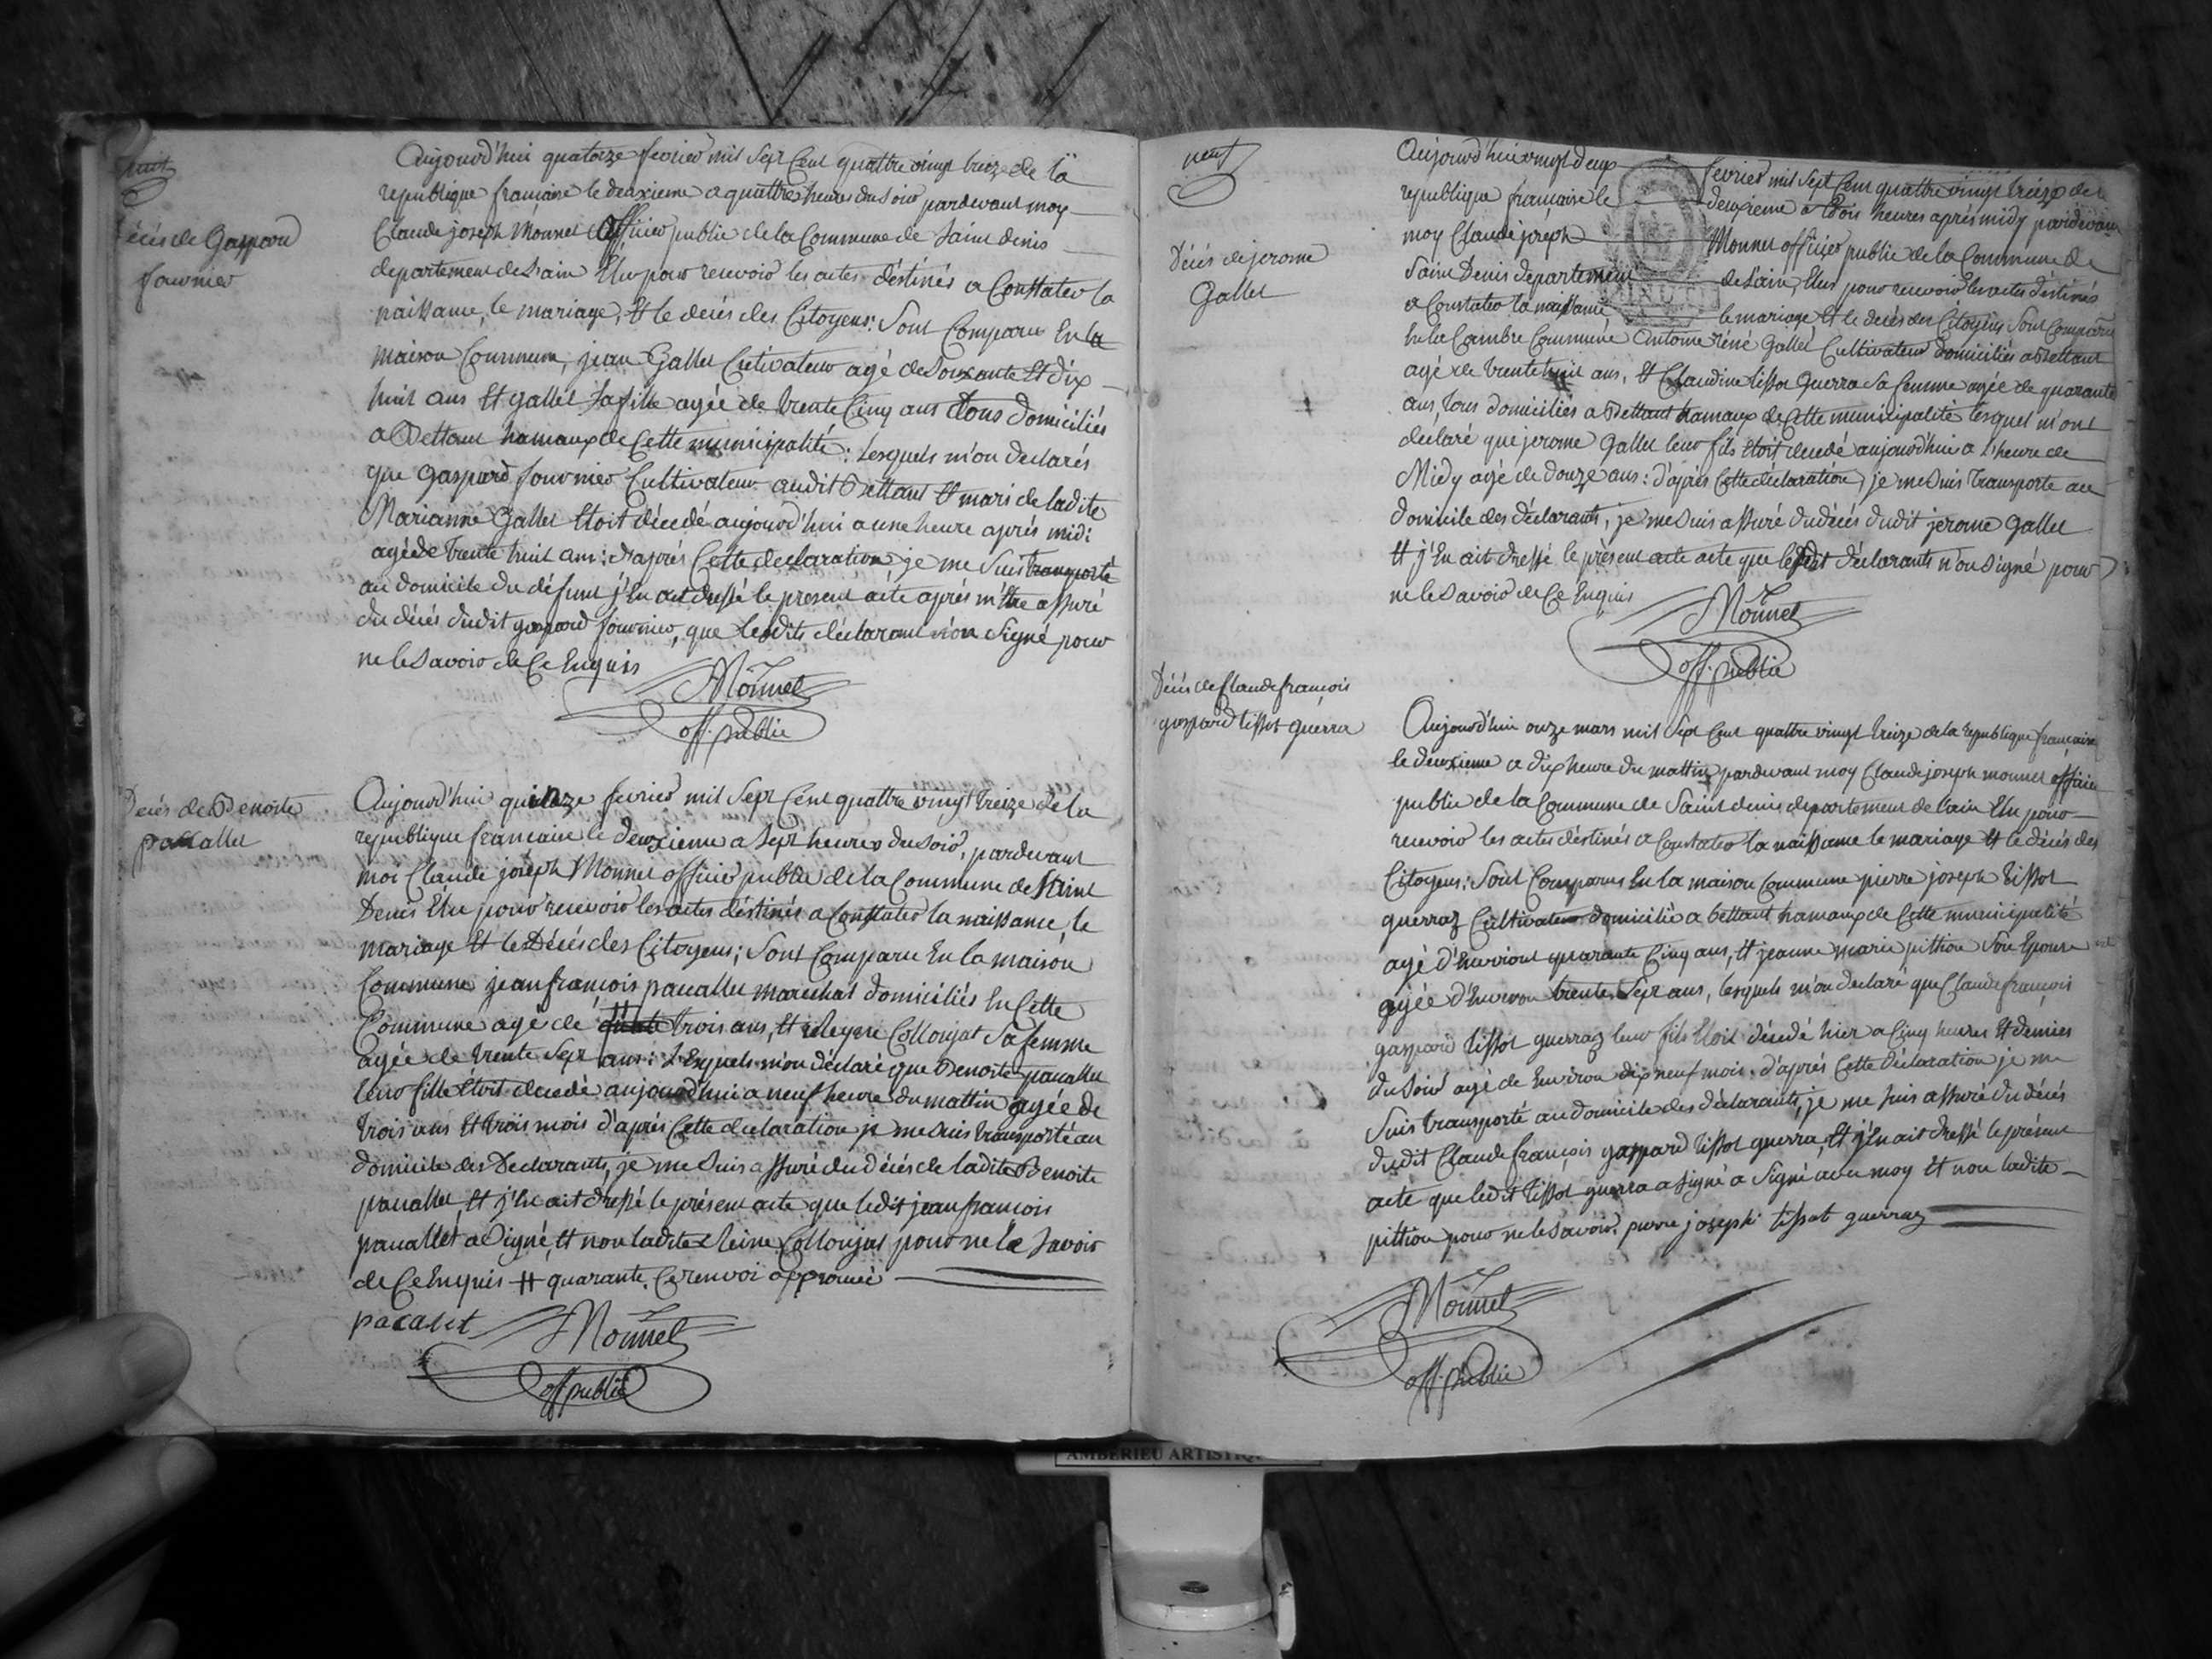 huit
Décés de Gaspard
fournier
Aujourd'hui quatorze fevrier mil Sept Cent quattre vingt treize de la
republique francaise le deuxieme a quattres heures du Soir pardevant moy
Claude joseph Monnet officier public de la Commune de Saint denis
departement de l'ain Elu pour recevoir les actes déstinés a Constater la
naissance, le mariage, Et le decés des Citoyens: Sont Comparu En la
maison Commune, jean Gallet Cultivateur agé de Soixante Et dix
huit ans Et gallet Sa fille agée de trente Cinq ans tous domiciliés
a Bettant hamaux de Cette municipalité: Lesquels m'on declarés
que Gaspard fournier Cultivateur audit Bettant Et mari de ladite
Marianne Gallet Etoit décedé aujourd'hui a une heure aprés midi
agé de trente huit ans: d'aprés Cette declaration je me Suis transporté
au domicile du défunt j'En ait dressé le present acte aprés m'être assuré
du décés dudit gaspard fournier, que lesdits déclarant n'on Signé pour
ne le Savoir de Ce Enquis
Monnet
off. public
Decés de Benoite
pacallet
Aujourd'hui quinze fevrier mil Sept Cent quattre vingt treize de la
republique francaise le deuxieme a Sept heures du Soir, pardevant
moi Claude joseph Monnet officier public de la Commune de Saint
Denis Elu pour recevoir les actes déstinés a Constater la naissance, le
mariage Et le Décés des Citoyens; Sont Comparu En la maison
Commune jean françois pacallet marechal domiciliés En Cette
Commune agé de # trois ans, Et Collonjat Sa femme
agée de trente Sept ans: Lesquels m'on déclaré que Benoite pacallet
leur fille Etoit decedé aujourd'hui a neuf heure du mattin agée de
trois ans Et trois mois d'aprés Cette declaration je me Suis transporté au
domicile des Declarants, je me Suis assuré du décés de ladite Benoite
pacallet, Et j'En ait dressé le présent acte que ledit jean francois
pacallet a Signé, Et non ladite Reine Collonjat pour ne le Savoir
de Ce Enquis # quarante. Ce renvoi approuvé
pacalet
Monnet
off public
neuf
Décés de jerome
Gallet
Aujourd'hui vingt deux fevrier mil Sept Cent quattre vingt treize de la
republique française le deuxieme a trois heures aprés midy pardevant
moy Claude joseph Monnet officier public de la Commune de
Saint Denis departement de l'ain, Elus pour recevoir les actes déstinés
a Constater la naissance le mariage Et le decés des Citoyens Sont Comparus
En la Cambre Commune Antoine réné Gallet Cultivateur domiciliés a Bettant
agé de trente huit ans, Et Claudine tissot Guerra Sa femme agée de quarante
ans, tous domicilies a Bettant hamaux de Cette municipalité lesquel m'ont
déclaré que jerome Gallet leur fils Etoit decedé aujourd'hui a L'heure de
Midy agé de douze ans: d'aprés Cette déclaration, je me Suis transporte au
domicile des déclarants, je me Suis assuré du décés dudit jerome gallet
Et j'En ait dressé le présent acte acte que lesdit déclarants n'on Signé pour
ne le Savoir de Ce Enquis
Monnet
off. public
Décés de Claude françois
gaspard tissot Guérra
Aujourd'hui onze mars mil Sept Cent quattre vingt treize de la republique française
le deuxieme a dix heure du mattin pardevant moy Claude joseph monnet officier
public de la Commune de Saint denis departement de l'ain Elu pour
recevoir les actes déstinés a Constater la naissance le mariage Et le décés des
Citoyens: Sont Comparus En la maison Commune pierre joseph tissot
guerraz Cultivateur domicilié a bettant hamaux de Cette municipalité
agé d'Environt quarante Cinq ans, Et jeanne marie pittion Son Epouse
agée d'Environ trente Sept ans, lesquels m'on declaré que Claude françois
gaspard tissot guerraz leur fils Etoit décedé hier a Cinq heures Et demies
du Soir agé de Environ dix neuf mois. d'aprés Cette déclaration je me
Suis transporté au domicile des déclarants, je me Suis assuré du décés
dudit Claude françois gaspard tissot guerra, Et j'En ait dressé le présent
acte que ledit tissot guerra a signé a Signé avec moy Et non ladite
pittion pour ne le Savoir. pierre joseph tissot guerraz
Monnet
off. public
AMBERIEU ARTISTIQU